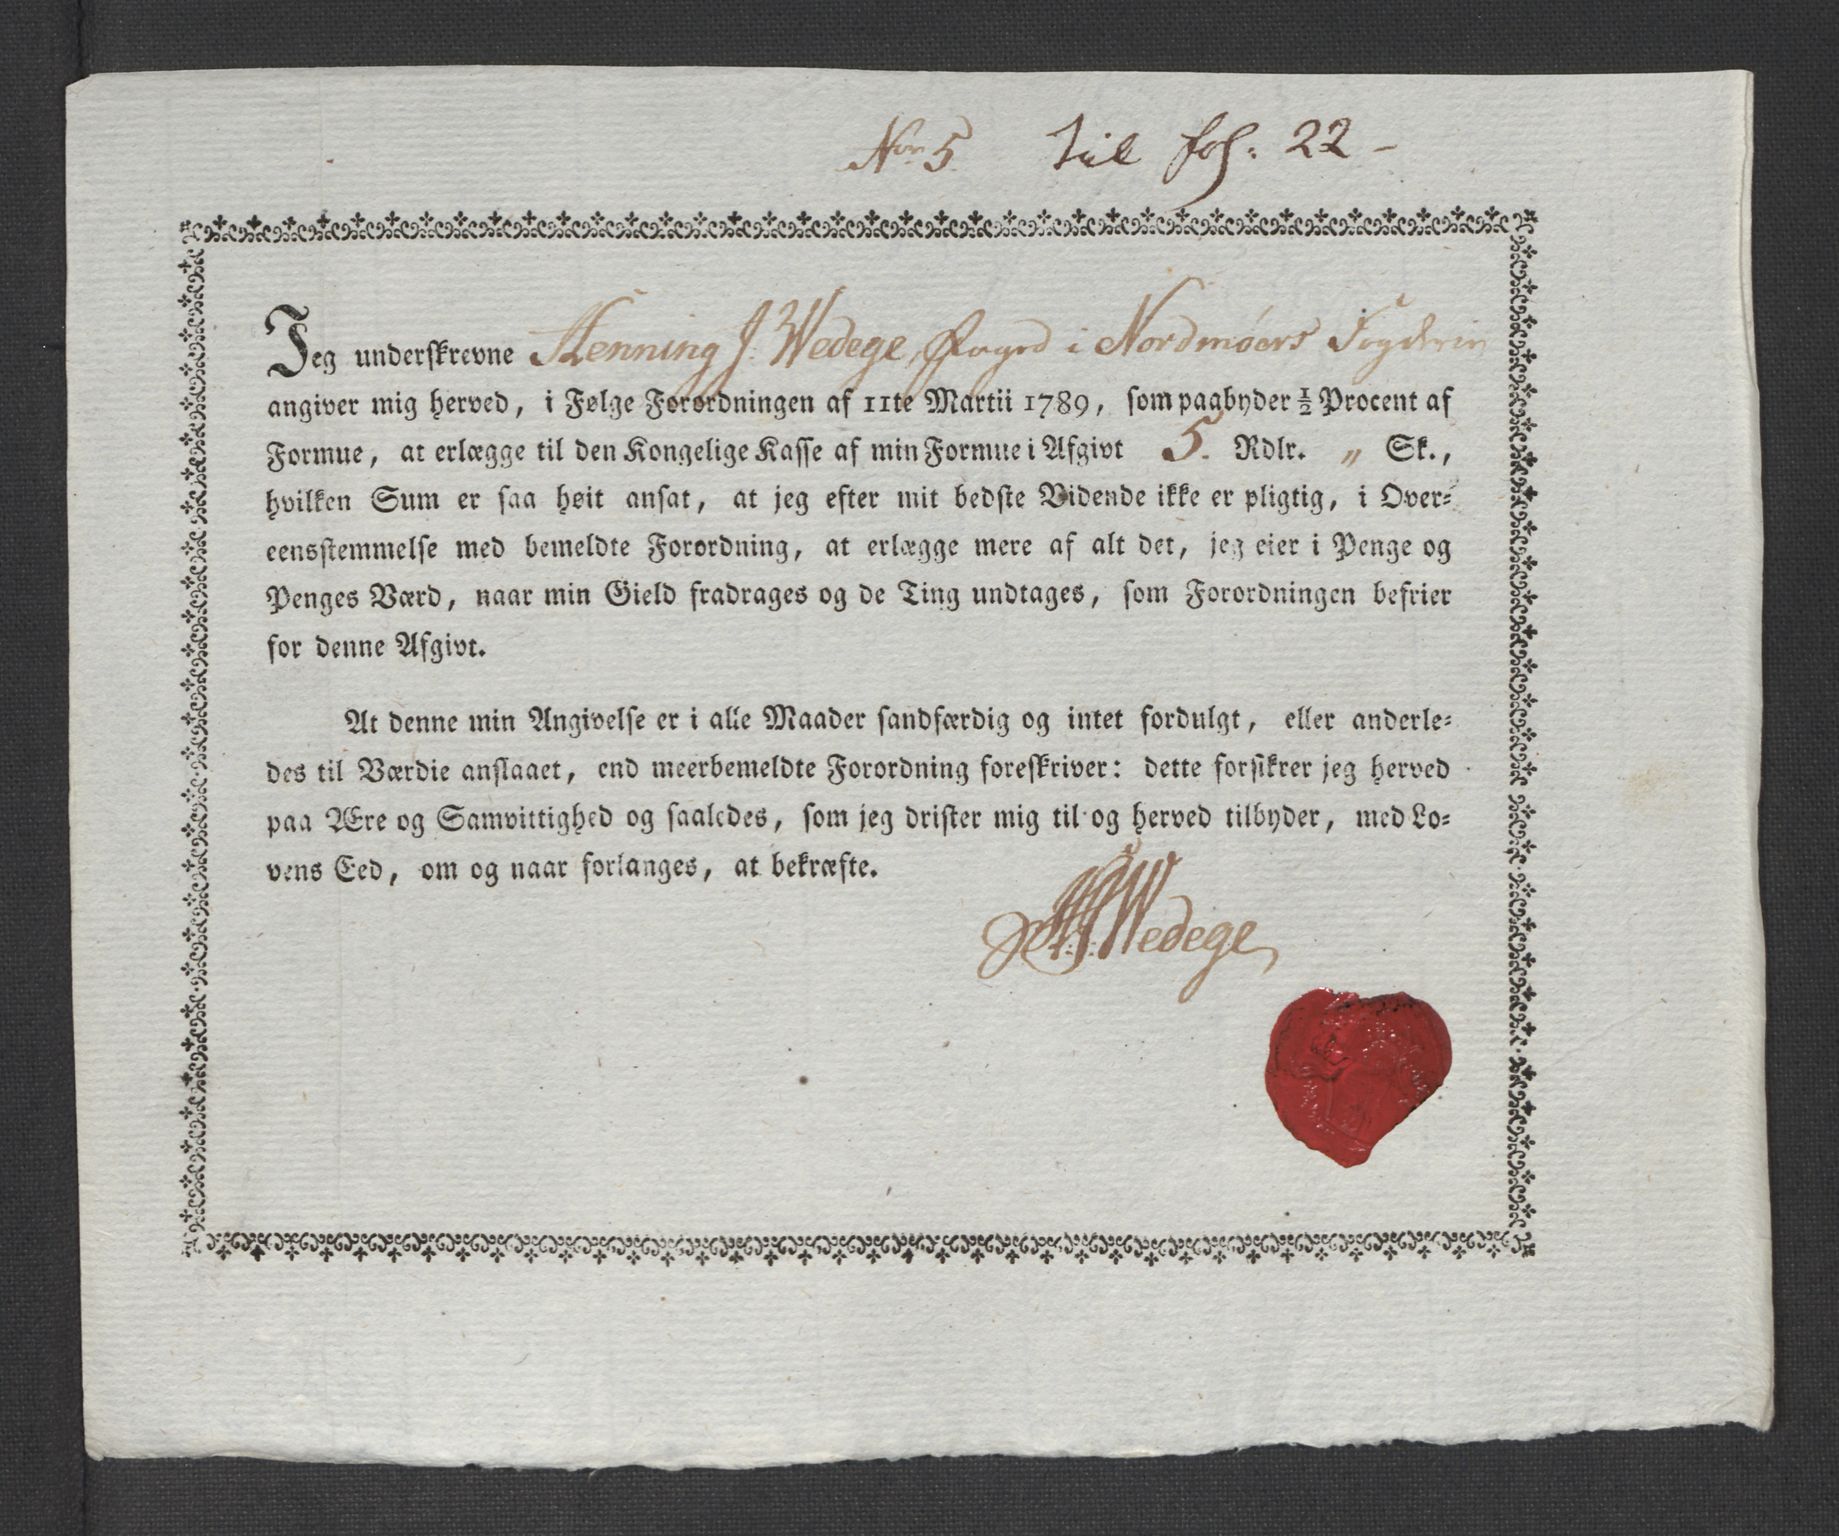 No 5. Til fol: 22 -
Jeg underskrevne Henning J: Wedege, Foged i Nordmøers Fogderie
angiver mig herved, i Følge Forordningen af 11te Martii 1789, som paabyder ½ Procent af
Formue, at erlægge til den Kongelige Kasse af min Formue i Afgivt 5. Rdlr. „ Sk.,
hvilken Sum er saa høit ansat, at jeg efter mit bedste Vidende ikke er pligtig, i Over⸗
eensstemmelse med bemeldte Forordning, at erlægge mere af alt det, jeg eier i Penge og
Penges Værd, naar min Gield fradrages og de Ting undtages, som Forordningen befrier
for denne Afgivt.
At denne min Angivelse er i alle Maader sandfærdig og intet fordulgt, eller anderle⸗
des til Værdie anslaaet, end meerbemeldte Forordning foreskriver: dette forsikrer jeg herved
paa Ære og Samvittighed og saaledes, som jeg drister mig til og herved tilbyder, med Lo⸗
vens Eed, om og naar forlanges, at bekræfte.
H: J: Wedege